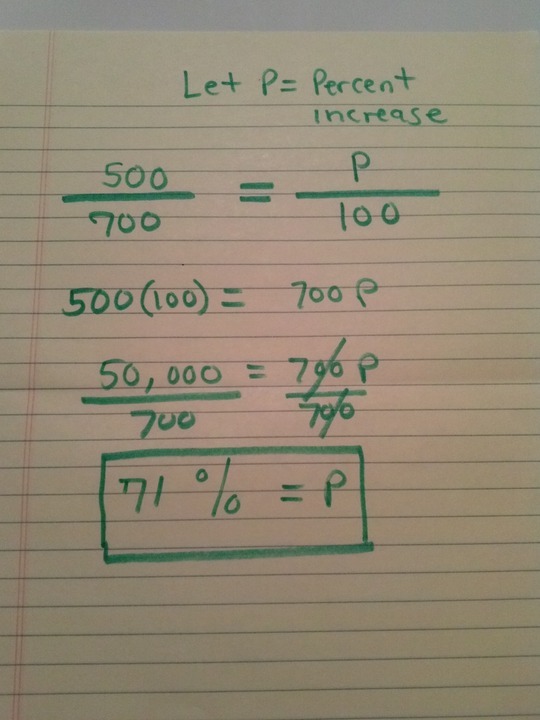 Let P = Percent
increase
500/700 = P/100
500(100) = 700 P
50,000/700 = 700 P/700
71 % = P